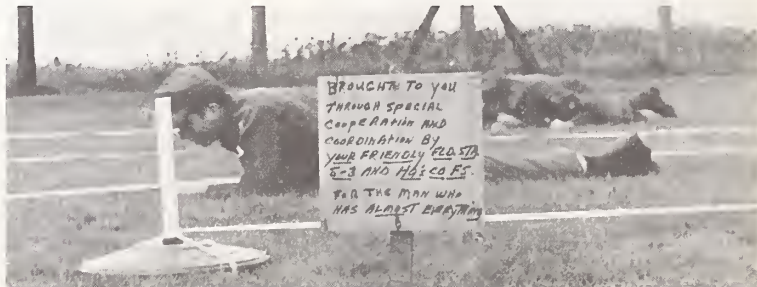 BROUGHT TO YOU
THROUGH SPECIAL
COOPERATION AND
COORDINATION BY
YOUR FRIENDLY FLD. STA
S-3 AND HQ'S CO FS.
FOR THE MAN WHO
HAS ALMOST EVERYTHING